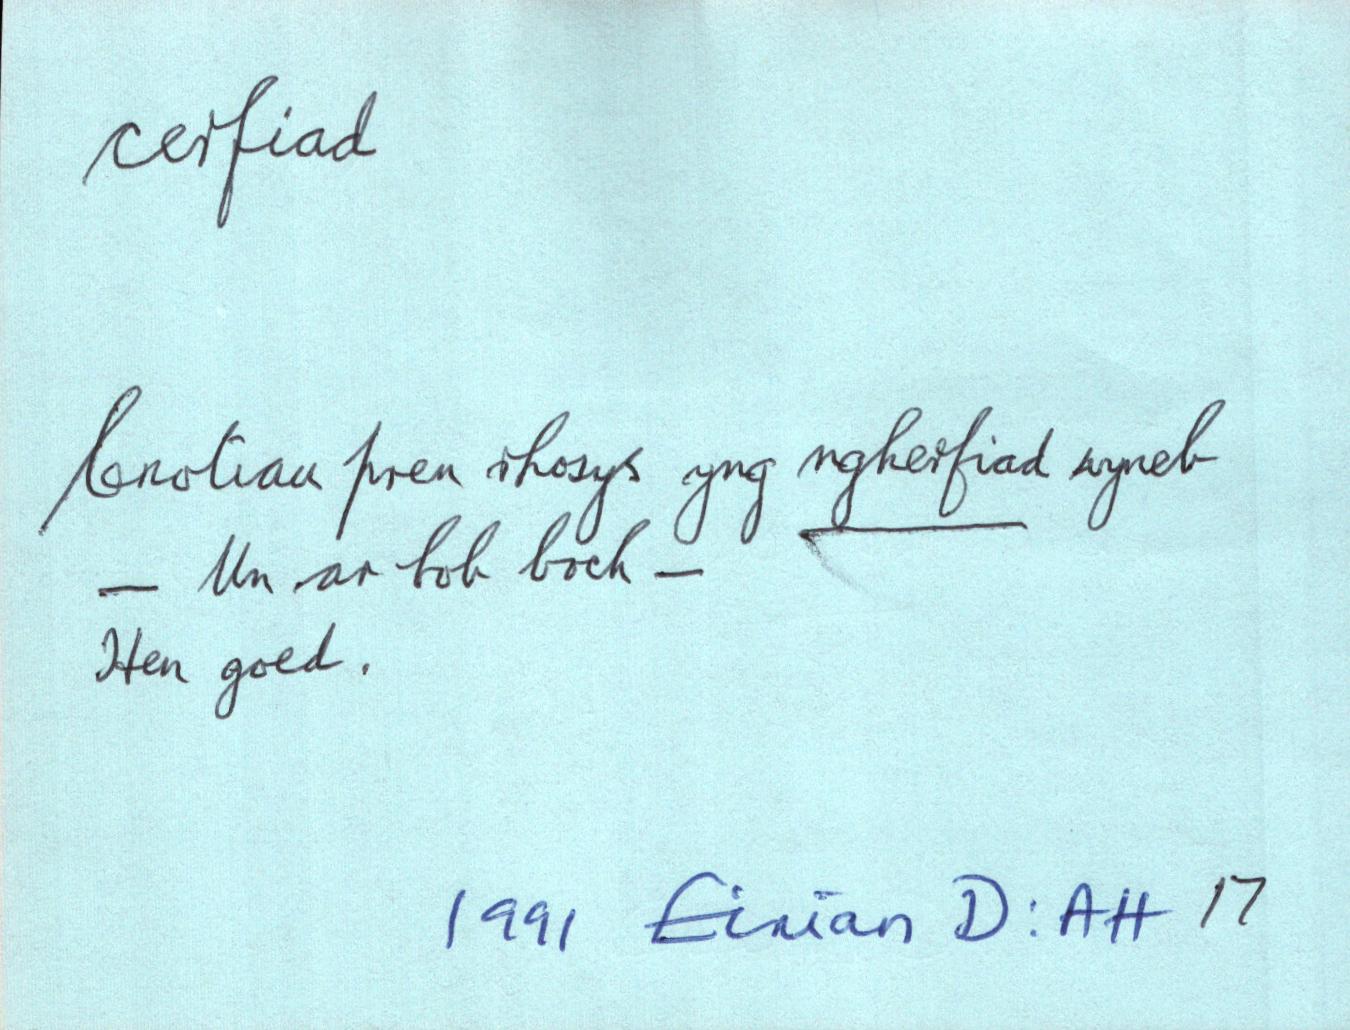 cerfiad
Cnotiau pren rhosys yng ngherfiad wyneb
— Un ar bob boch —
Hen goed.
1991 Eirian D: AH 17